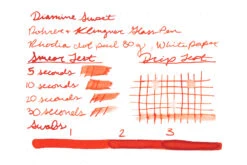 Diamine Smart
Rohrer & Klingner Glass Pen
Rhodia dot pad 80g. White paper
Smear Test
Drip Test
5 seconds
10 seconds
20 seconds
30 seconds
Swabs
1 2 3